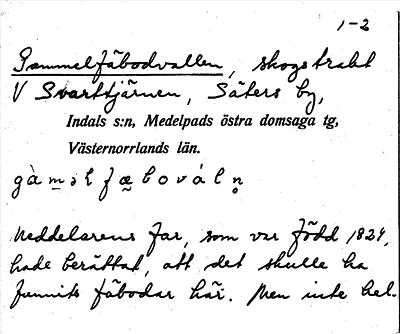 1-2
Gammelfäbodvallen, skogstrakt
V Svarttjärnen, Säters by,
Indals s:n, Medelpads östra domsaga tg,
Västernorrlands län.
gàm̲əɫ fæ̬bováln̥
Meddelarens far, som var född 1824,
hade berättat, att det skulle ha
funnits fäbodar här. Men inte hel-